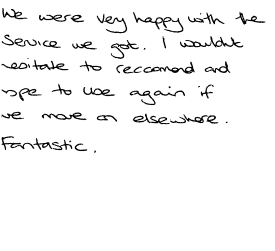 We were very happy with the
Service we got. I wouldnt
hesitate to reccomend and
hope to use again if
we move on elsewhere.
Fantastic.